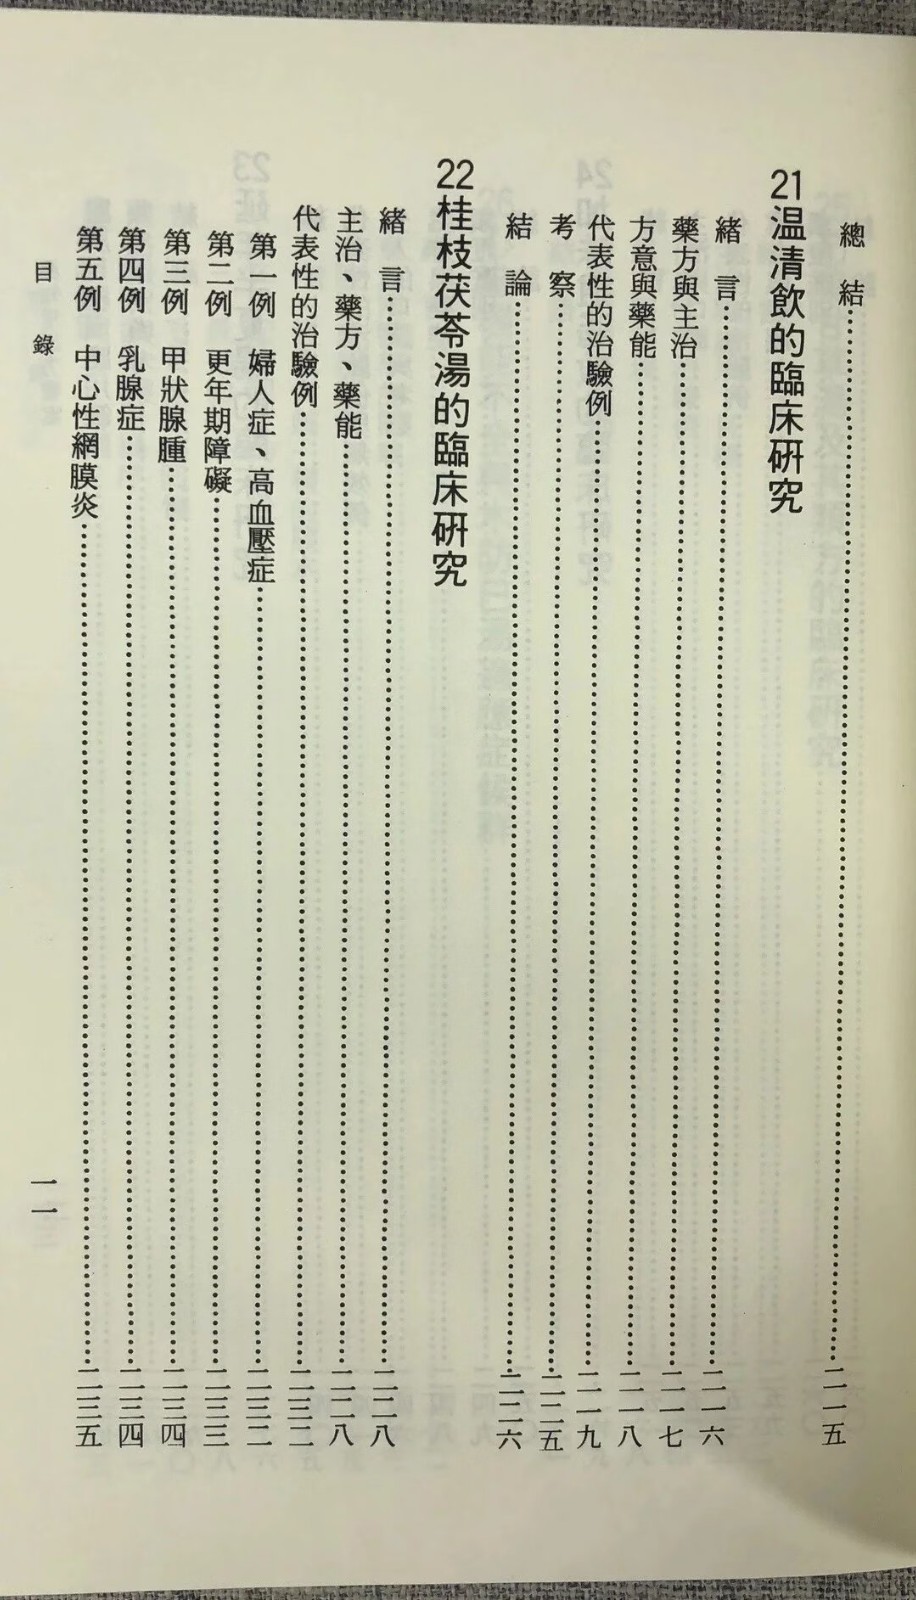 總結……二一五
21温清飲的臨床研究
緒言……二一六
藥方與主治……二一七
方意與藥能……二一八
代表性的治驗例……二一九
考察……二二五
結論……二二六
22桂枝茯苓湯的臨床研究
緒言……二二八
主治、藥方、藥能……二二八
代表性的治驗例……二三二
第一例 婦人症、高血壓症……二三二
第二例 更年期障礙……二三三
第三例 甲狀腺腫……二三四
第四例 乳腺症……二三四
第五例 中心性網膜炎……二三五
目錄 一一